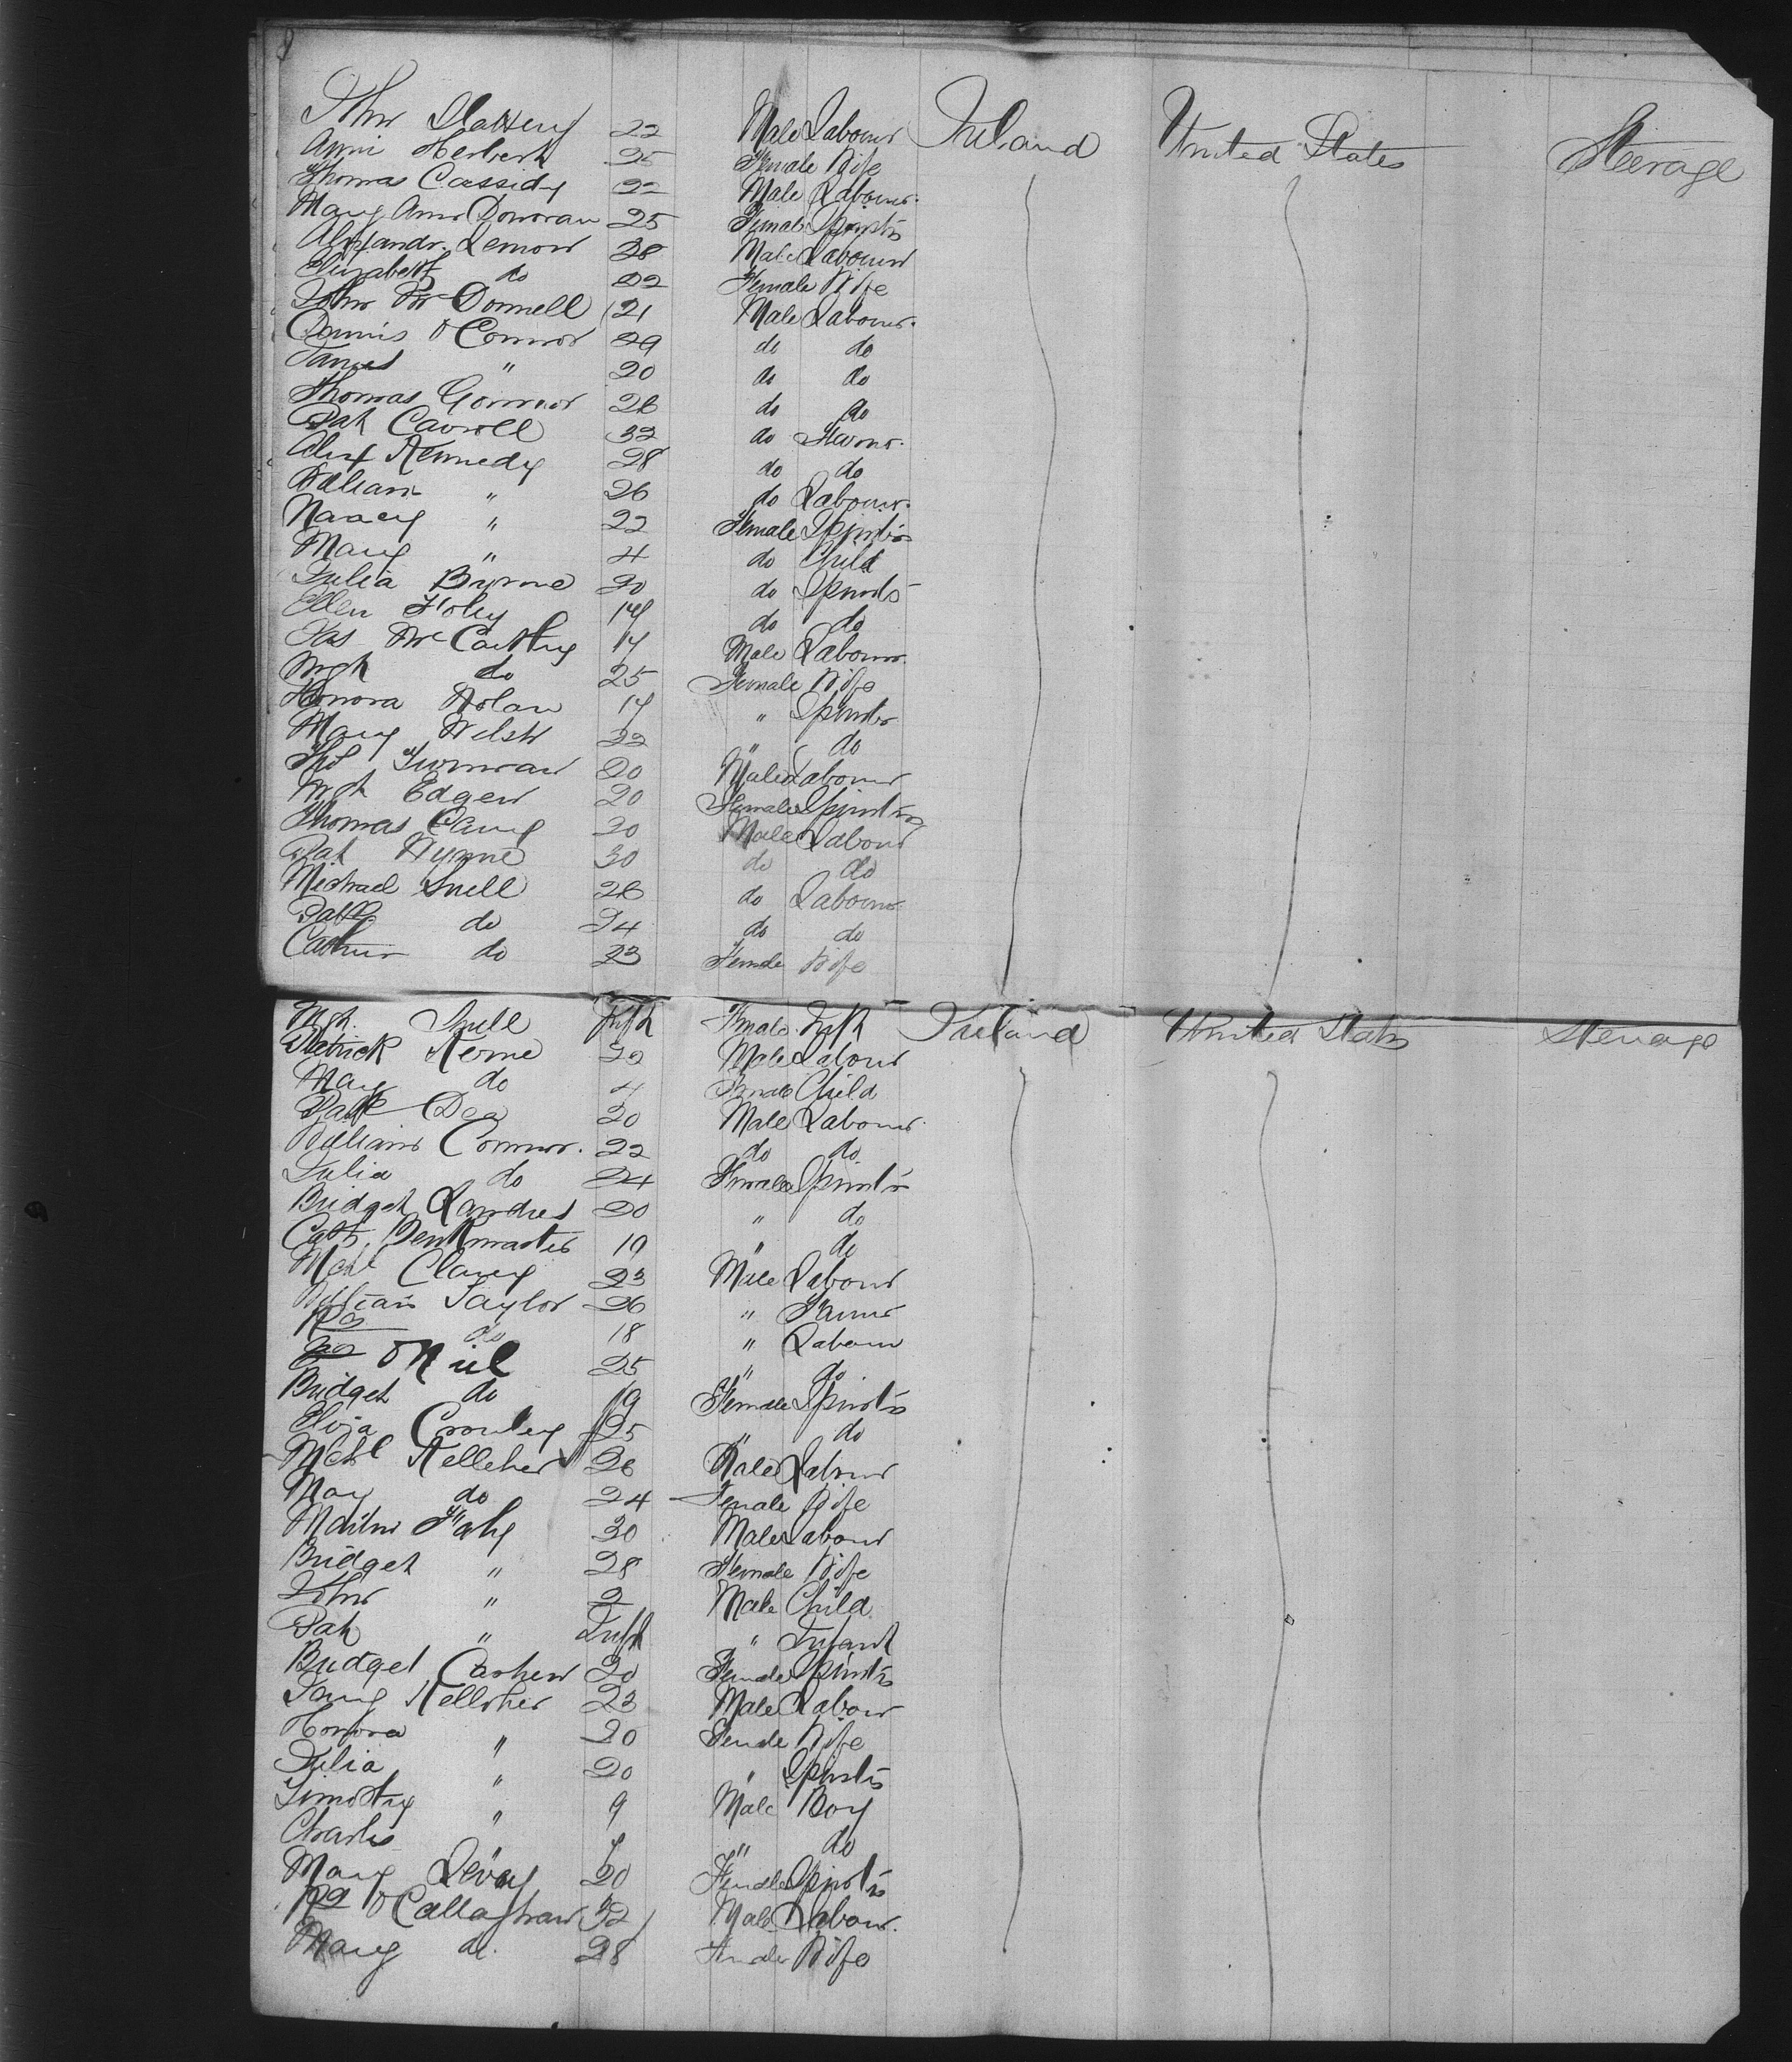 John Slattery 22 Male Labour Ireland United States Steerage
Ann Herbert 25 Female Wife
Thomas Cassidy 22 Male Labour
Mary Ann Donovan 25 Female Spinstr
Alexandr. Lemon 28 Male Labour
Elizabeth do 22 Female Wife
John McDonnell 21 Male Labour
Dennis O'Connor 29 do do
James " 20 do do
Thomas Connor 26 do do
Pat Carroll 32 do
Alex Kennedy 28 do do
William " 26 do Labour
Nancy " 22 Female Spinstr
Mary " 4 do Child
Julia Byrne 20 do Spinstr
Ellen Foley do do
Jas McCarthy 17 Male Labour
Mgt do 25 Female Wife
Honora Nolan 17 " Spinstr
Mary Welsh 22 " do
Ths 20 Male Labour
Mgt 20 Female Spinstr
Thomas 20 Male Labour
Pat 30 do do
Michael Snell 26 do Labour
Patk do 24 do do
do 23 Female Wife
Mgt. Snell Inft Female Inft Ireland United States Steerage
Patrick 22 Male Labour
Mary do 4 Female Child
Patk Dea 20 Male Labour
William Connor. 22 do do
Julia do 24 Female Spinstr
Bridget Landres 20 " do
Cath. 19 " do
Mchl Clancy 23 Male Labour
William Taylor 26 " Farmer
do 18 " Labour
O'Neil 25 " do
Bridget do 19 Female Spinstr
Eliza Crowley 25 " do
Mchl Kelleher 26 Male Labour
Mary do 24 Female Wife
Martin Fahy 30 Male Labour
Bridget " 28 Female Wife
John " 2 Male Child
Pat " Inft " Infant
Bridget 20 Female Spinstr
Kelleher 23 Male Labour
Honora " 20 Female Wife
Julia " 20 " Spinstr
Timothy " 9 Male Boy
Charles " 7 " do
Mary 20 Female Spinstr
O'Callaghan 32 Male Labour.
Mary do. 28 Female Wife